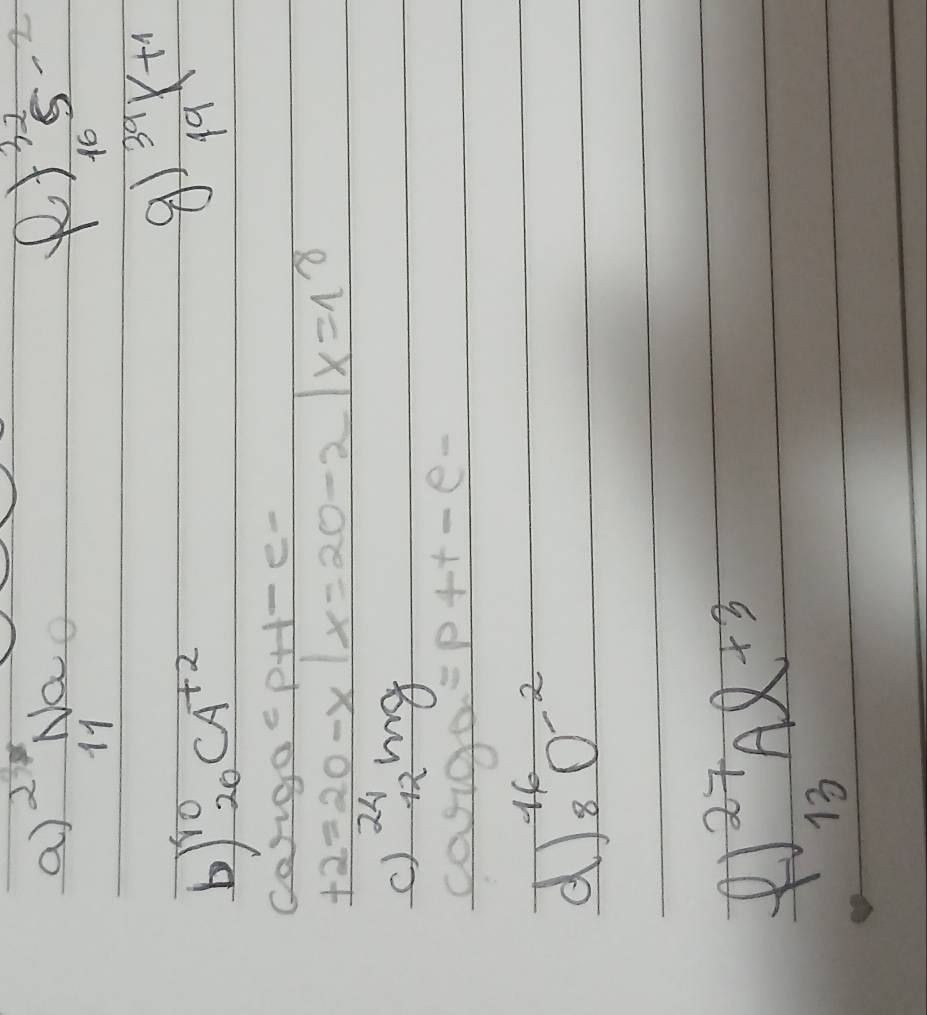 a) 23 Na 0
11
b) 40 CA +2
20
cargo = p+ - e-
+2 = 20 - x | x = 20 - 2 | x = 18
c) 24 mg
12
cargo = p+ - e-
d) 16 O -2
8
f) 27 Al +3
13
f) 32 S -2
16
g) 39 K +1
19